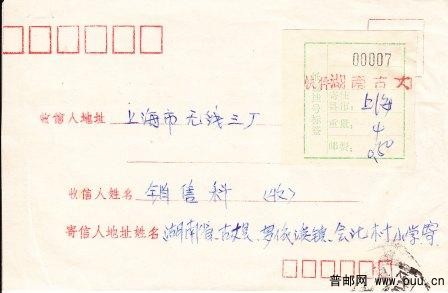 00007
湖南古大
上海
重量：4
邮费：0.50
收信人地址 上海市无线三厂
收信人姓名 销售科（收）
寄信人地址姓名 湖南省古丈县罗依溪镇会比村小学寄
普邮网 www.puu.cn